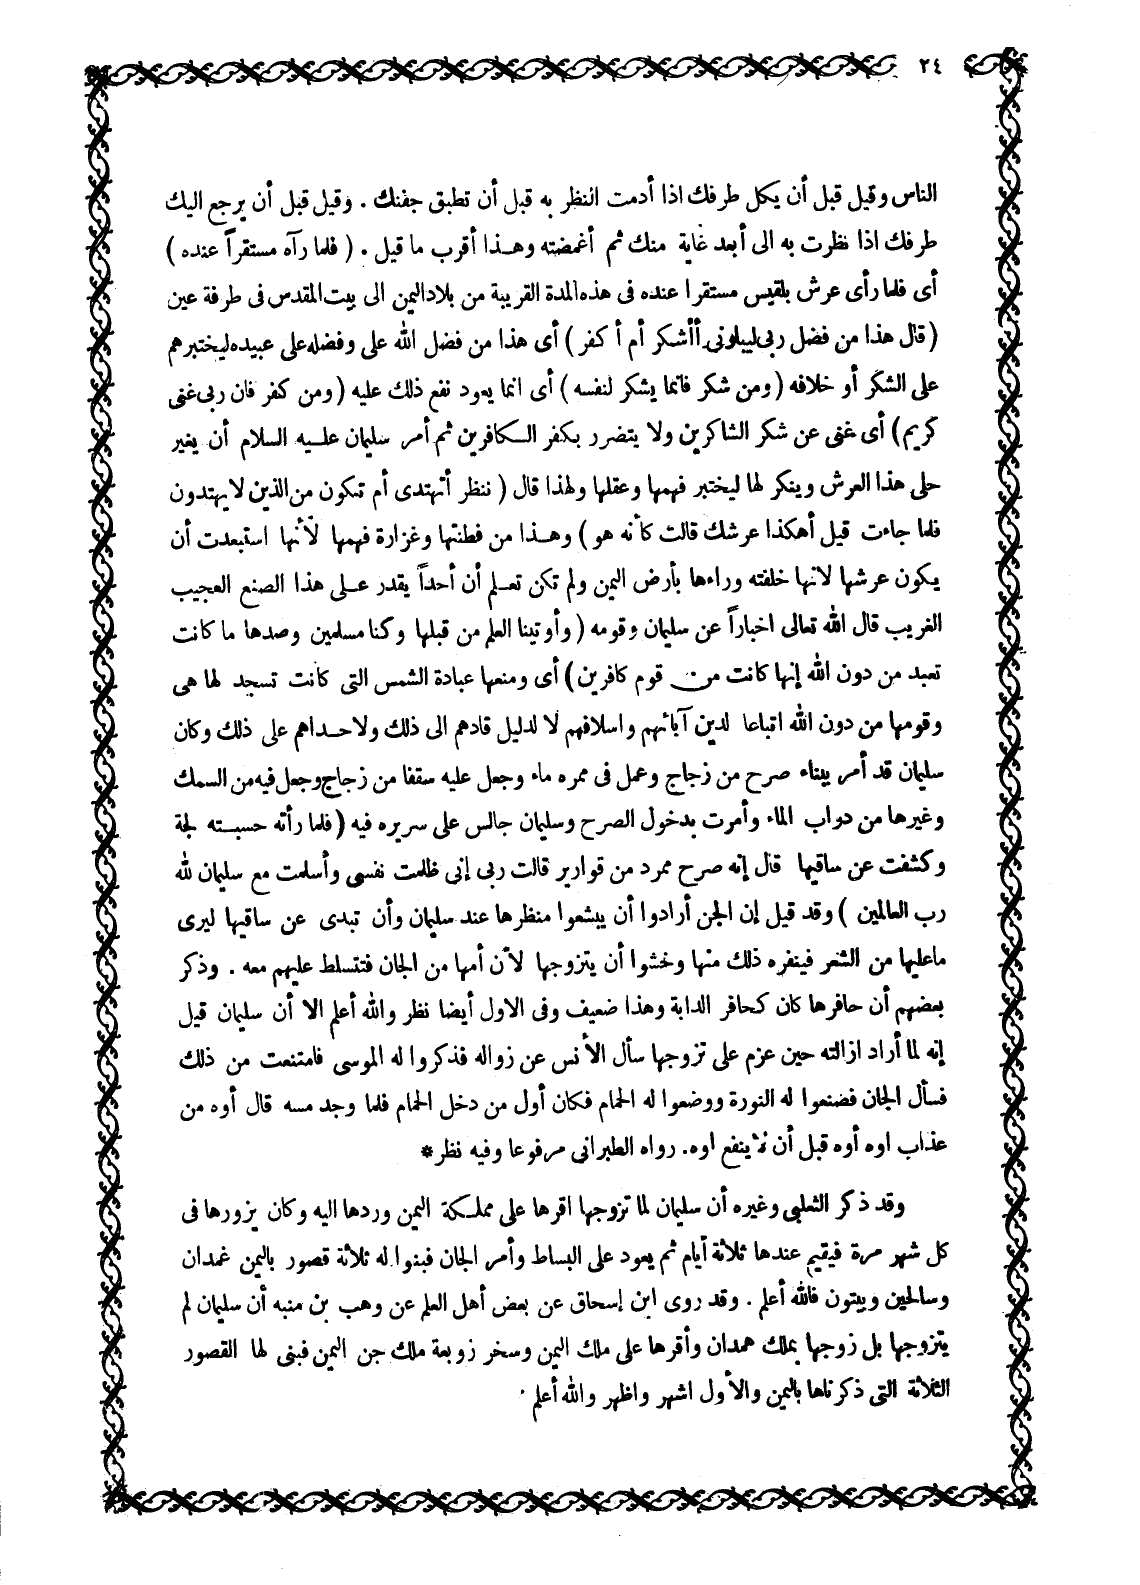 ٢٤
الناس وقيل قبل أن يكل طرفك اذا أدمت النظر به قبل أن تطبق جفنك . وقيل قبل أن يرجع اليك
طرفك اذا نظرت به الى أبعد غاية منك ثم أغمضته وهذا أقرب ما قيل . ( فلما رآه مستقراً عنده )
أى فلما رأى عرش بلقيس مستقرا عنده فى هذه المدة القريبة من بلاد اليمن الى بيت المقدس فى طرفة عين
( قال هذا من فضل ربى ليبلونى أأشكر أم أ كفر ) أى هذا من فضل الله على وفضله على عبيده ليختبرهم
على الشكر أو خلافه ( ومن شكر فانما يشكر لنفسه ) أى انما يعود نفع ذلك عليه ( ومن كفر فان ربى غنى
كريم ) أى غنى عن شكر الشاكرين ولا يتضرر بكفر الكافرين ثم أمر سليمان عليه السلام أن يغير
حلى هذا العرش وينكر لها ليختبر فهمها وعقلها ولهذا قال ( ننظر أتهتدى أم تكون من الذين لا يهتدون
فلما جاءت قيل أهكذا عرشك قالت كأنه هو ) وهذا من فطنتها وغزارة فهمها لأنها استبعدت أن
يكون عرشها لانها خلفته وراءها بأرض اليمن ولم تكن تعلم أن أحداً يقدر على هذا الصنع العجيب
الغريب قال الله تعالى اخباراً عن سليمان وقومه ( وأوتينا العلم من قبلها وكنا مسلمين وصدها ما كانت
تعبد من دون الله إنها كانت من قوم كافرين ) أى ومنعها عبادة الشمس التى كانت تسجد لها هى
وقومها من دون الله اتباعا لدين آبائهم واسلافهم لا لدليل قادهم الى ذلك ولا حداهم على ذلك وكان
سليمان قد أمر ببناء صرح من زجاج وعمل فى ممره ماء وجعل عليه سقفا من زجاج وجعل فيه من السمك
وغيرها من دواب الماء وأمرت بدخول الصرح وسليمان جالس على سريره فيه ( فلما رأته حسبته لجة
وكشفت عن ساقيها قال إنه صرح ممرد من قوارير قالت ربى إنى ظلمت نفسى وأسلمت مع سليمان لله
رب العالمين ) وقد قيل إن الجن أرادوا أن يبشعوا منظرها عند سليمان وأن تبدى عن ساقيها ليرى
ماعليها من الشعر فينفره ذلك منها وخشوا أن يتزوجها لأن أمها من الجان فتتسلط عليهم معه . وذكر
بعضهم أن حافرها كان كحافر الدابة وهذا ضعيف وفى الاول أيضا نظر والله أعلم الا أن سليمان قيل
إنه لما أراد ازالته حين عزم على تزوجها سأل الأنس عن زواله فذكروا له الموسى فامتنعت من ذلك
فسأل الجان فصنعوا له النورة ووضعوا له الحمام فكان أول من دخل الحمام فلما وجد مسه قال أوه من
عذاب اوه أوه قبل أن لا ينفع اوه. رواه الطبرانى مرفوعا وفيه نظر*
وقد ذكر الثعلبى وغيره أن سليمان لما تزوجها اقرها على مملكة اليمن وردها اليه وكان يزورها فى
كل شهر مرة فيقيم عندها ثلاثة أيام ثم يعود على البساط وأمر الجان فبنوا له ثلاثة قصور باليمن غمدان
وسالحين وبيتون فالله أعلم . وقد روى ابن إسحاق عن بعض أهل العلم عن وهب بن منبه أن سليمان لم
يتزوجها بل زوجها بملك همدان وأقرها على ملك اليمن وسخر زوبعة ملك جن اليمن فبنى لها القصور
الثلاثة التى ذكرناها باليمن والأول اشهر واظهر والله أعلم .